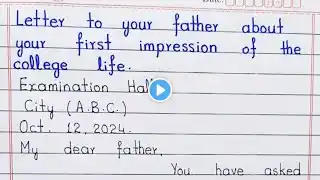 Date:
Letter to your father about
your first impression of the
college life.
Examination Hall
City (A.B.C.)
Oct. 12, 2024.
My dear father,
You have asked